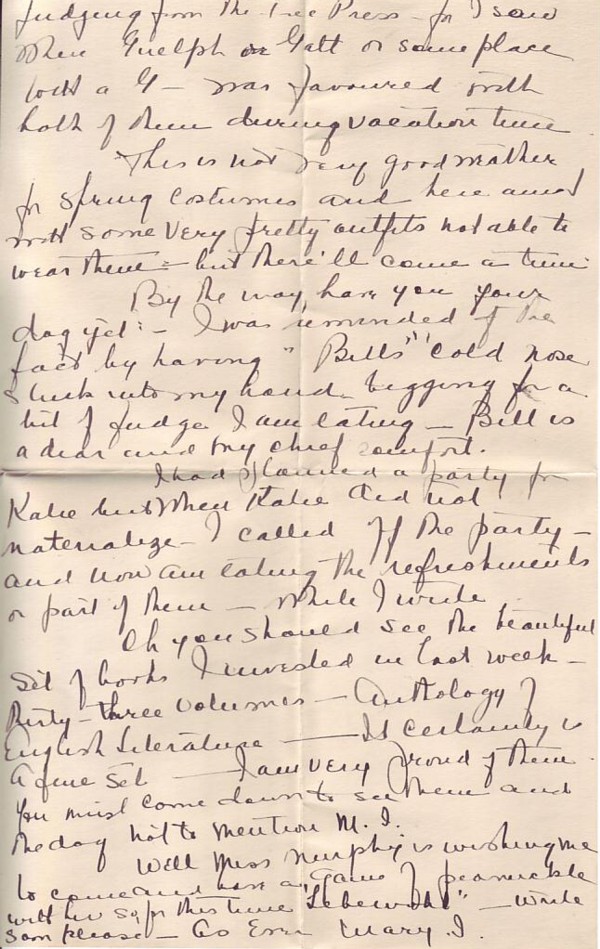 judging from the Free Press - for I saw
where Guelph or Galt or some place
with a G - was favoured with
both of them during vacation time
This is not very good weather
for spring costumes and here am I
with some very pretty outfits not able to
wear them - but there'll come a time
By the way, have you your
dog yet - I was reminded of the
fact by having "Bill's" cold nose
stuck into my hand begging for a
bit of fudge I am eating - Bill is
a dear and my chief comfort.
I had planned a party for
Katie but when Katie did not
materialize - I called off the party -
and now am eating the refreshments
or part of them - while I write
Oh you should see the beautiful
set of books I invested in last week -
thirty-three volumes - Anthology of
English Literature - It certainly is
a fine set - I am very proud of them.
You must come down to see them and
the dog not to mention M. I.
Well Miss Murphy is wishing me
to come and have a game of
with her so for this time "Lebewohl" - write
soon please - As Ever Mary I.